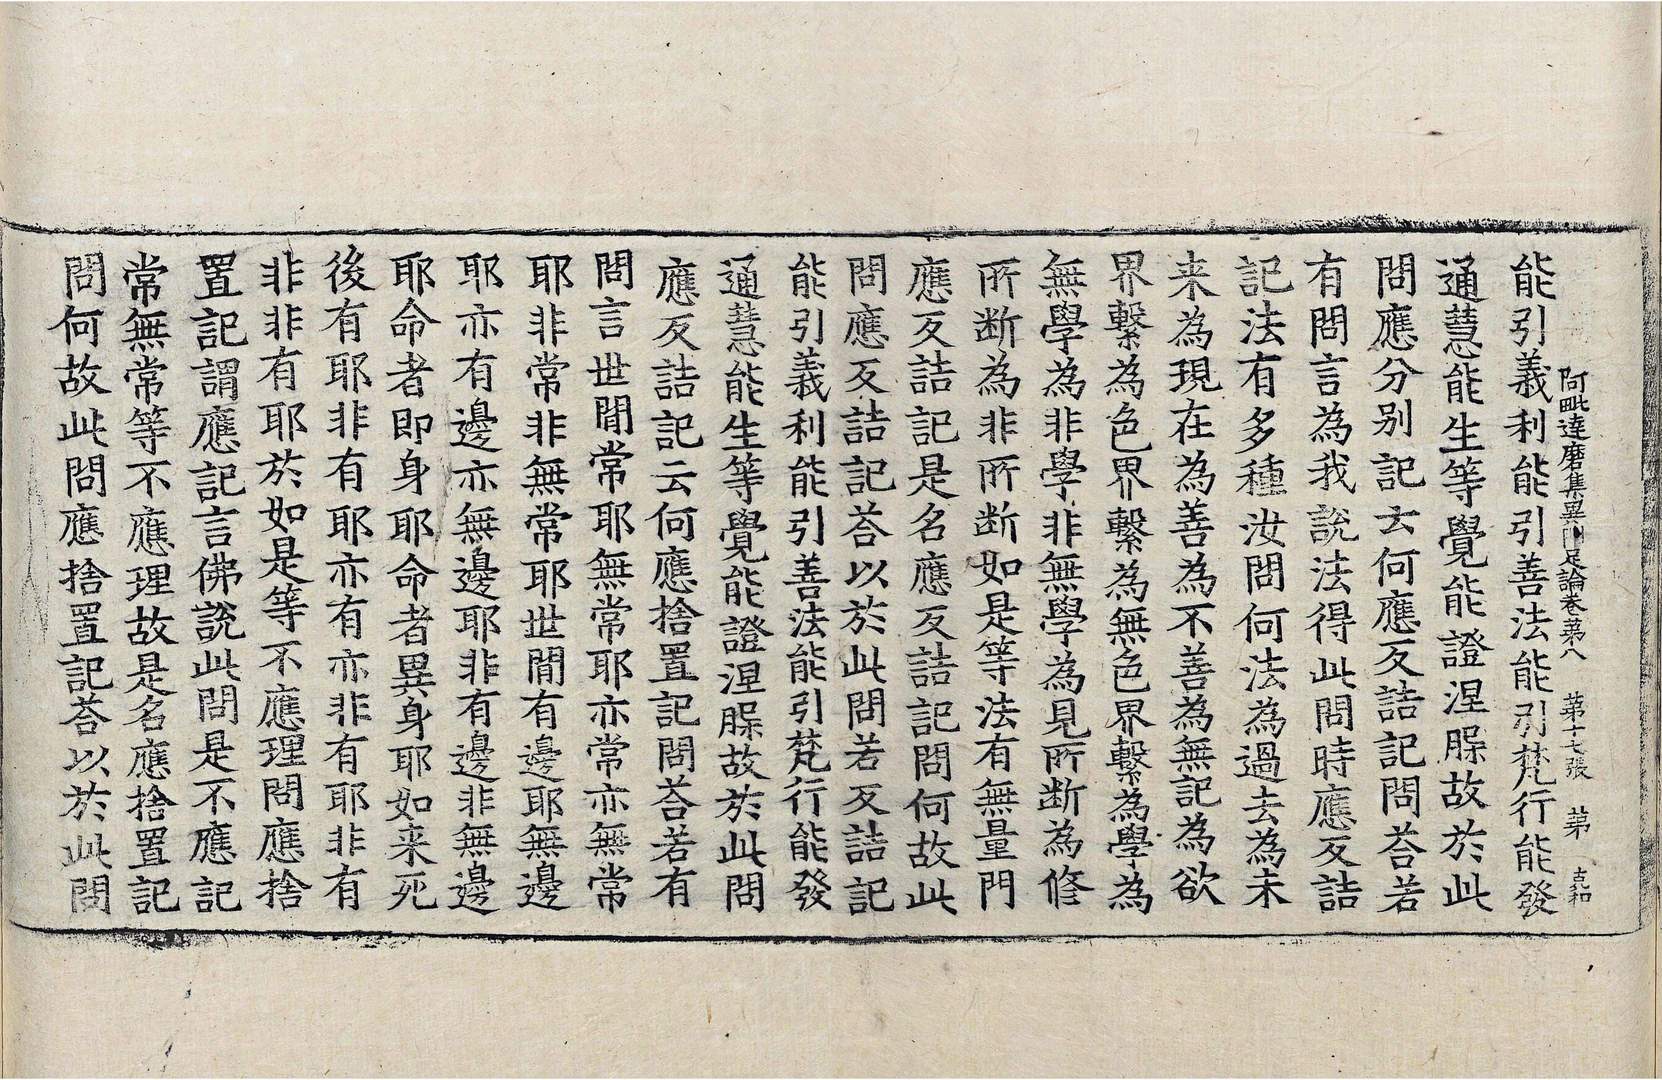 阿毗達磨集異門足論卷第八 第十七張 第 古和
能引義利能引善法能引梵行能發
通慧能生等覺能證涅槃故於此
問應分别記云何應反詰記問荅若
有問言為我說法得此問時應反詰
記法有多種汝問何法為過去為未
来為現在為善為不善為無記為欲
界繫為色界繫為無色界繫為學為
無學為非學非無學為見所断為修
所断為非所断如是等法有無量門
應反詰記是名應反詰記問何故此
問應反詰記荅以於此問若反詰記
能引義利能引善法能引梵行能發
通慧能生等覺能證涅槃故於此問
應反詰記云何應捨置記問荅若有
問言世間常耶無常耶亦常亦無常
耶非常非無常耶世間有邊耶無邊
耶亦有邊亦無邊耶非有邊非無邊
耶命者即身耶命者異身耶如来死
後有耶非有耶亦有亦非有耶非有
非非有耶於如是等不應理問應捨
置記謂應記言佛說此問是不應記
常無常等不應理故是名應捨置記
問何故此問應捨置記荅以於此問